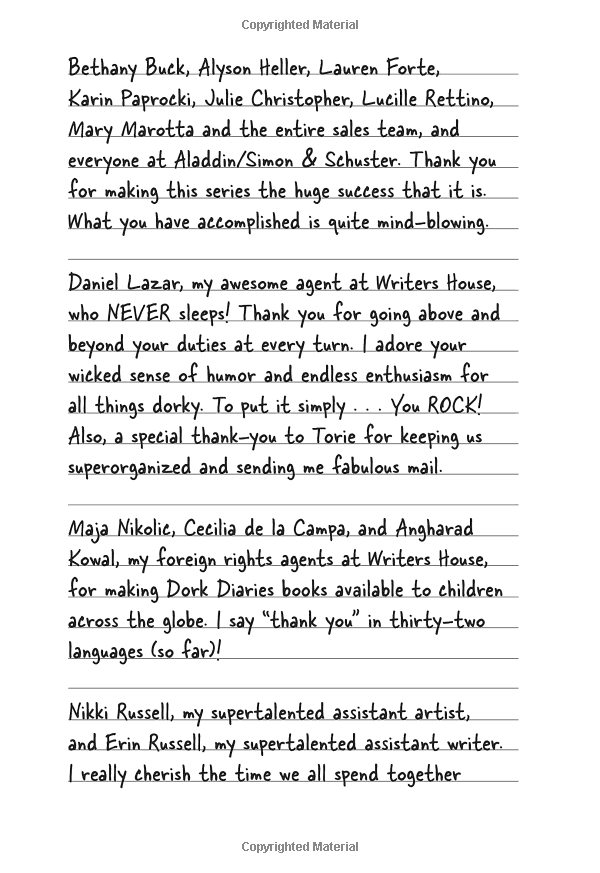 Copyrighted Material
Bethany Buck, Alyson Heller, Lauren Forte,
Karin Paprocki, Julie Christopher, Lucille Rettino,
Mary Marotta and the entire sales team, and
everyone at Aladdin/Simon & Schuster. Thank you
for making this series the huge success that it is.
What you have accomplished is quite mind–blowing.
Daniel Lazar, my awesome agent at Writers House,
who NEVER sleeps! Thank you for going above and
beyond your duties at every turn. I adore your
wicked sense of humor and endless enthusiasm for
all things dorky. To put it simply . . . You ROCK!
Also, a special thank–you to Torie for keeping us
superorganized and sending me fabulous mail.
Maja Nikolic, Cecilia de la Campa, and Angharad
Kowal, my foreign rights agents at Writers House,
for making Dork Diaries books available to children
across the globe. I say “thank you” in thirty–two
languages (so far)!
Nikki Russell, my supertalented assistant artist,
and Erin Russell, my supertalented assistant writer.
I really cherish the time we all spend together
Copyrighted Material